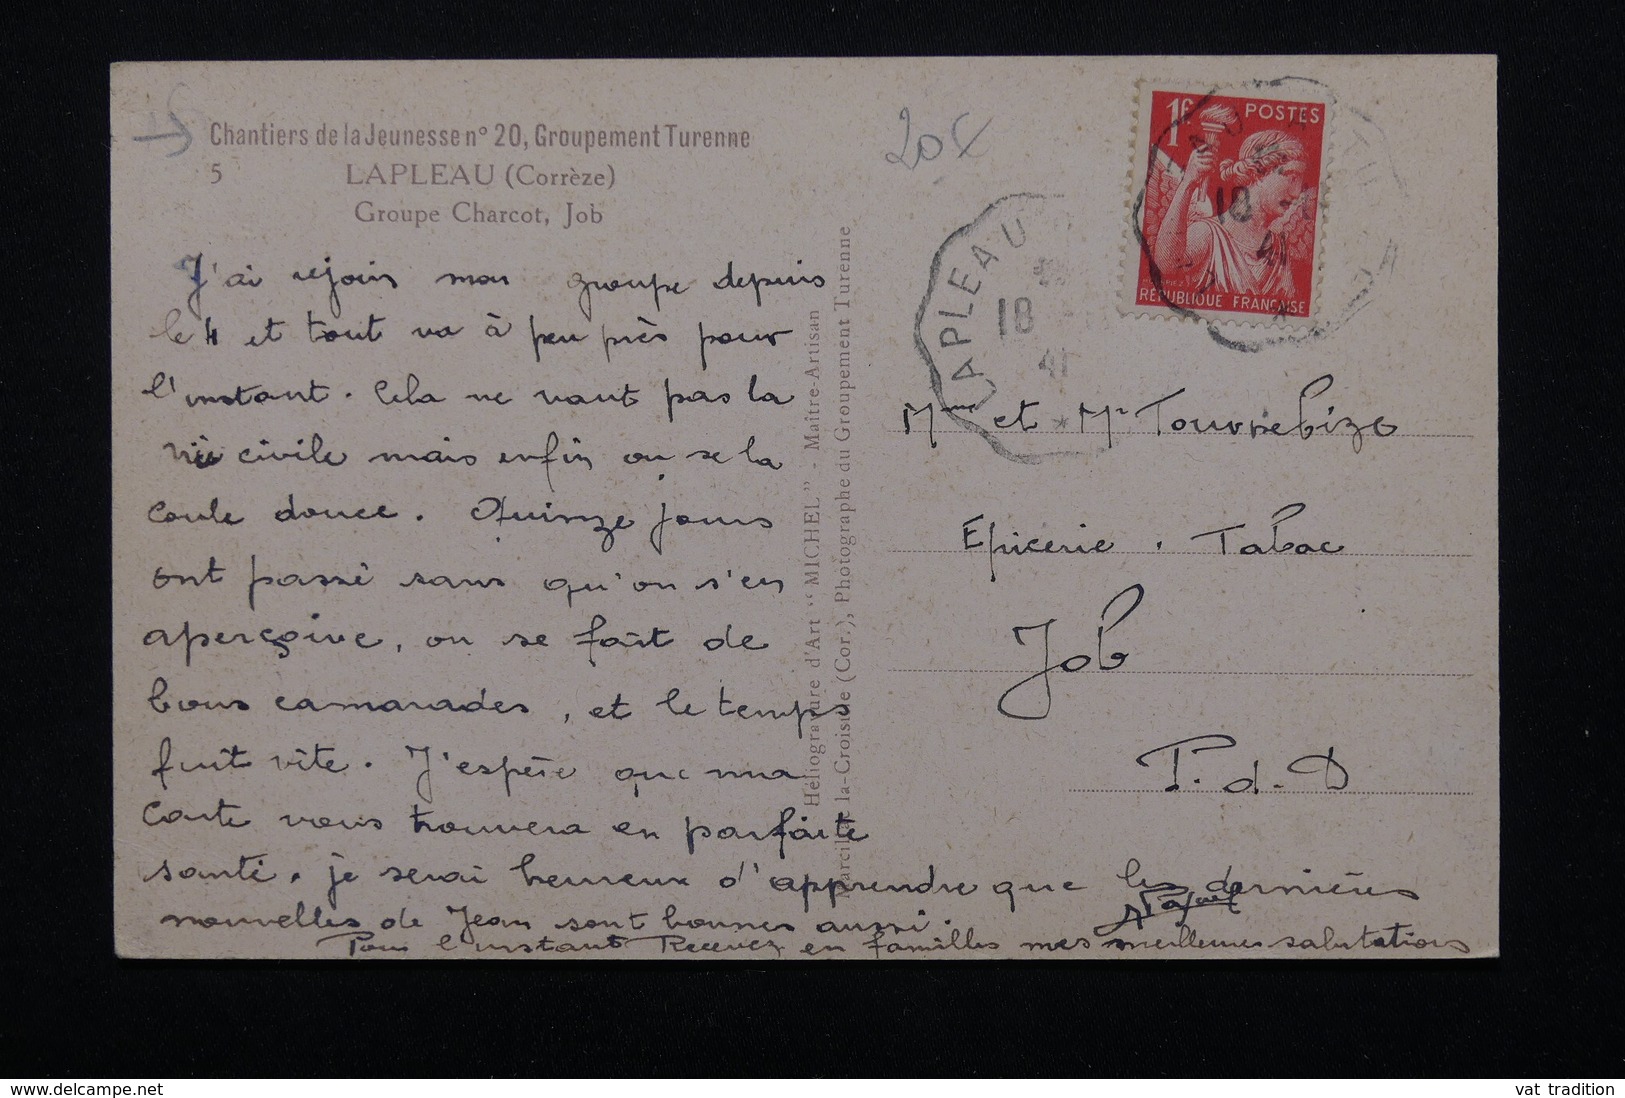 Chantiers de la Jeunesse n° 20, Groupement Turenne
5 LAPLEAU (Corrèze)
Groupe Charcot, Job
20€
1f POSTES
RÉPUBLIQUE FRANÇAISE
LAPLEAU
18
41
18 -1
41
J'ai rejoin mon groupe depuis
le 4 et tout va à peu près pour
l'instant. Cela ne vaut pas la
vie civile mais enfin on se la
coule douce. Quinze jours
ont passé sans qu'on s'en
aperçoive, on se fait de
bons camarades, et le temps
fuit vite. J'espère que ma
carte vous trouvera en parfaite
santé. je serai heureux d'apprendre que les dernières
nouvelles de Jean sont bonnes aussi.
Pour l'instant Recevez en familles mes meilleures salutations
Héliogravure d'Art "MICHEL" - Maître-Artisan
Marcillac-la-Croisille (Cor.), Photographe du Groupement Turenne
Mme et Mr Tournebize
Epicerie. Tabac
Job
P. d. D
delcampe.net
vat tradition